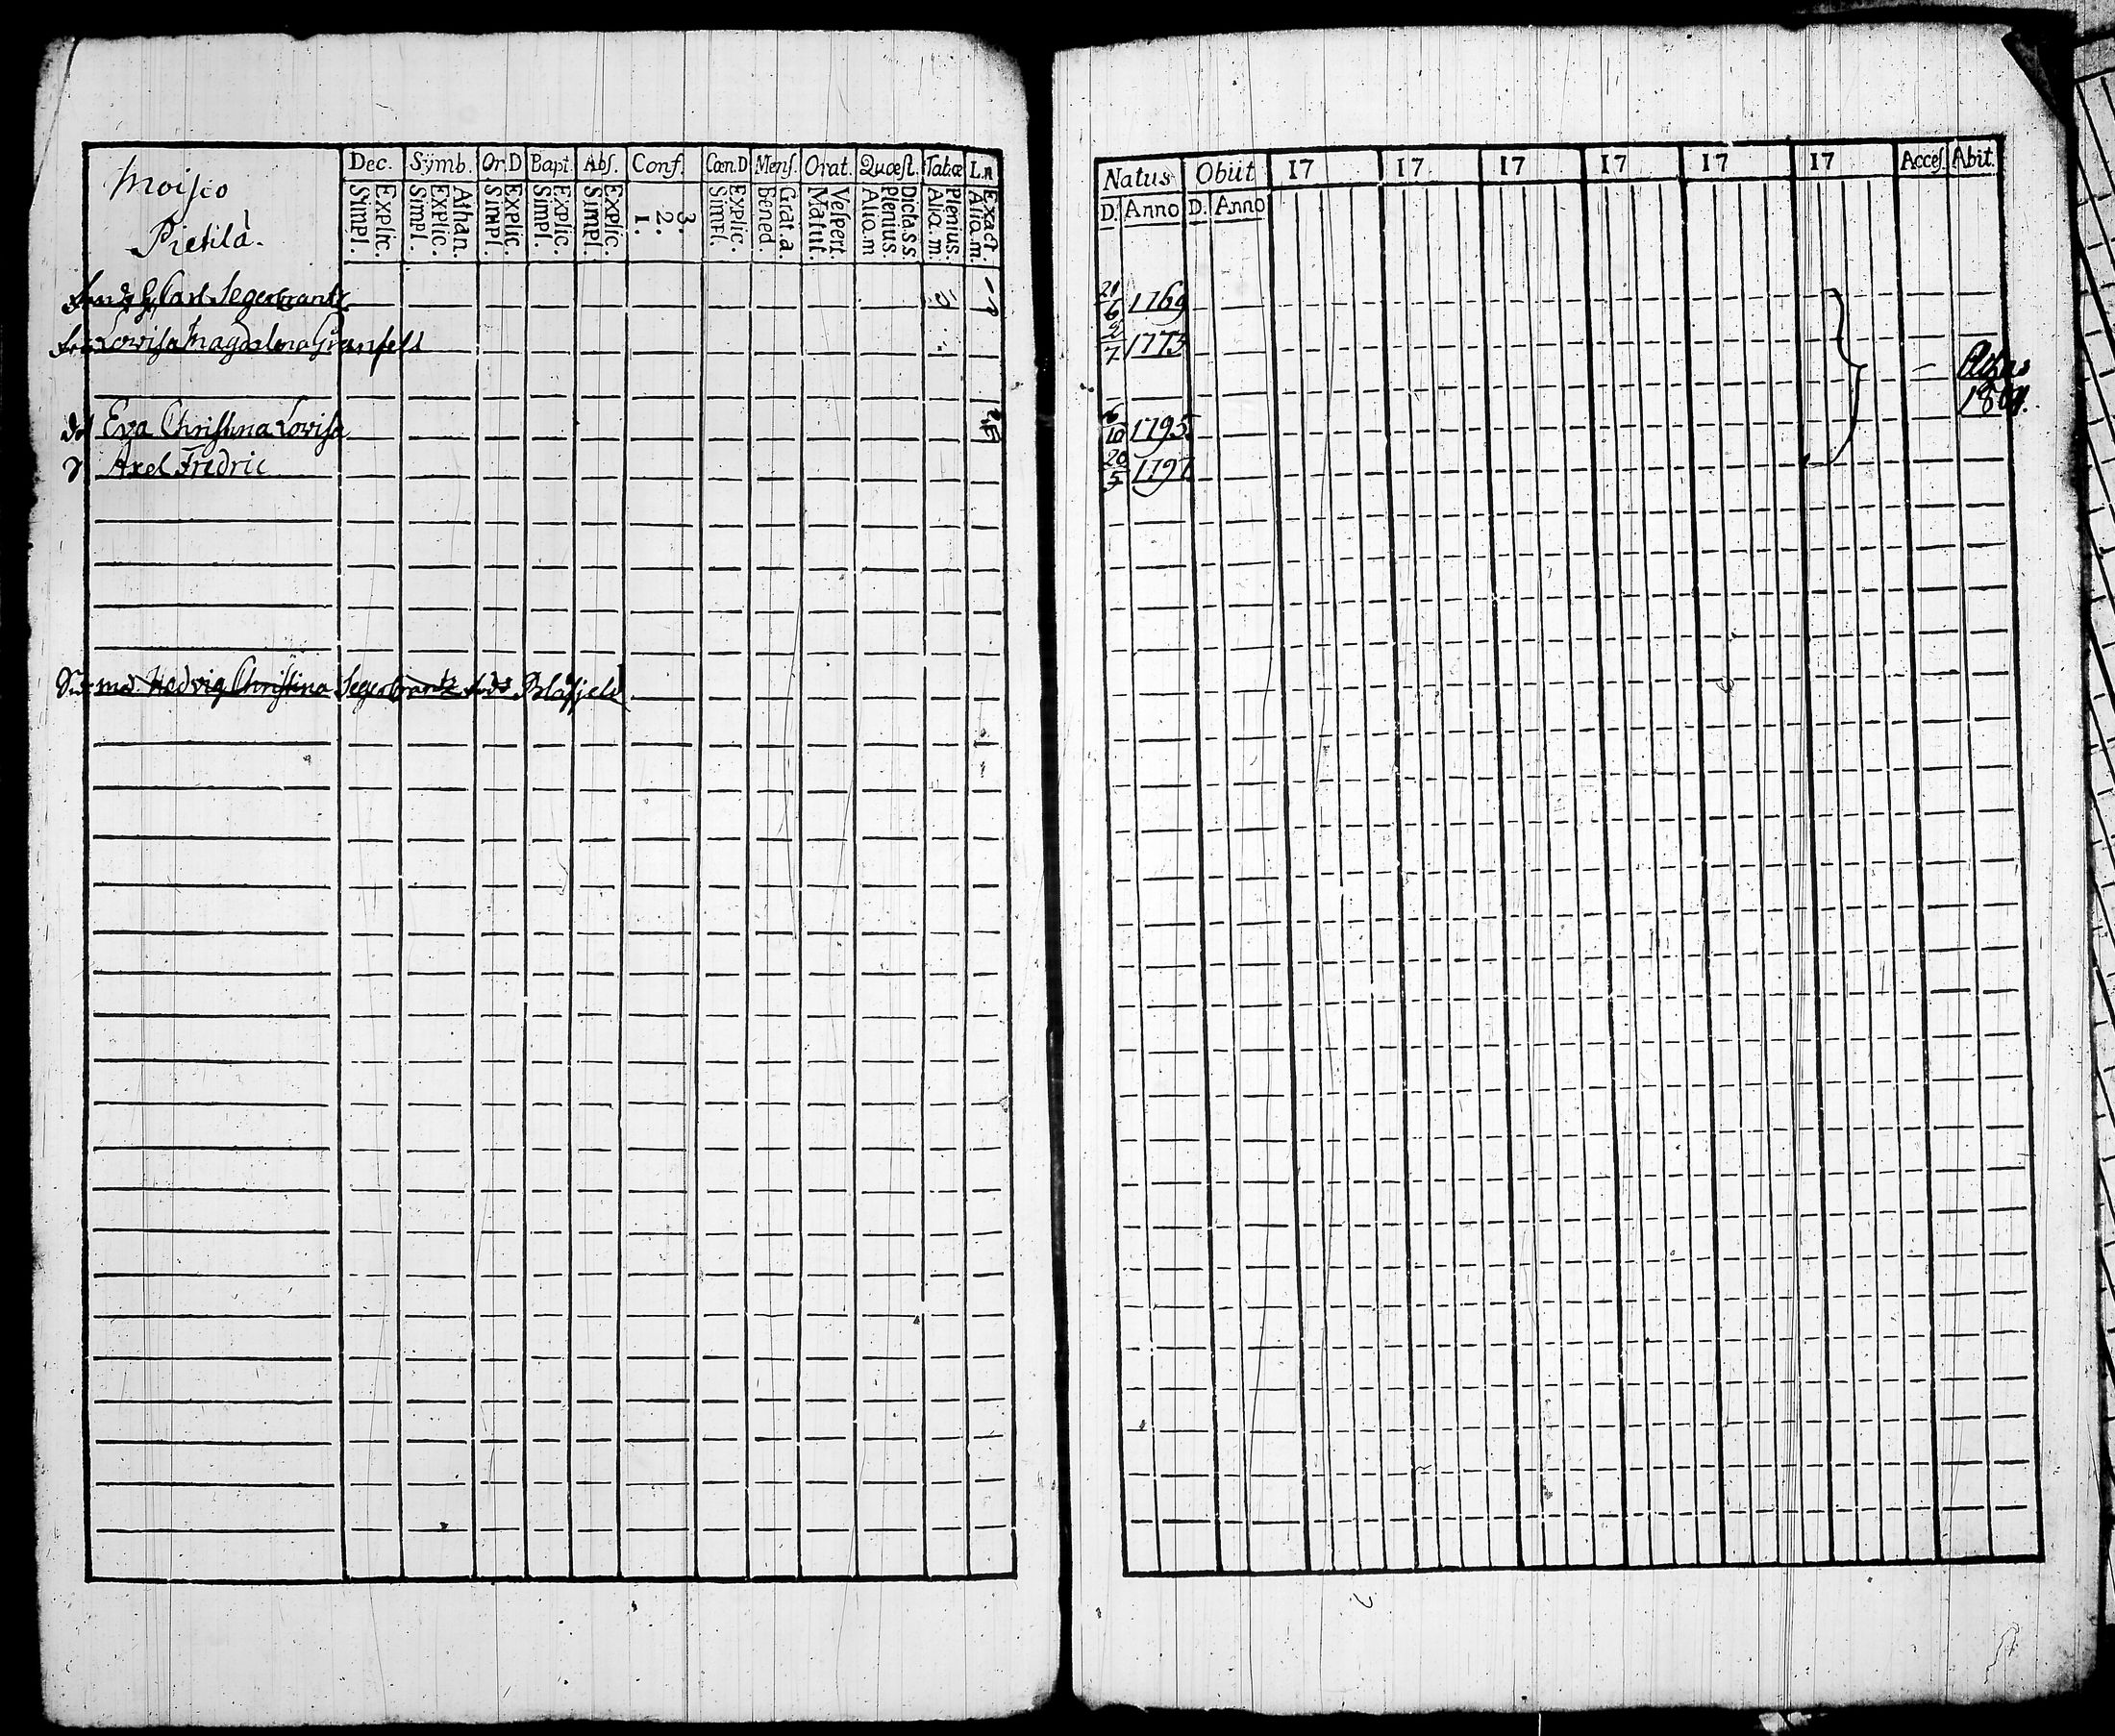 Moisio
Pietilä.
Dec. Symb. Or.D Bapt. Abs. Conf. Cœn.D Mens. Orat. Quæst. Tab.œ L.n
Explic. Simpl.
Athan. Explic. Simpl.
Explic. Simpl.
Explic. Simpl.
Explic. Simpl.
3. 2. 1.
Explic. Simpl.
Grat.a. Bened.
Vespert. Matut.
Dicta.s.s. Plenius. Aliq.m
Plenius. Aliq.m.
Exact. Aliq.m.
Carl Segerbrantz
Lovisa Magdalena Granfelt
Eva Christina Lovisa
Axel Fredric
Hedvig Christina Segerbrantz född Blåfjeld
Natus Obiit 17 17 17 17 17 17 Acces. Abit.
D. Anno D. Anno
20/6 1769
2/7 1773
6/10 1795
20/5 1797